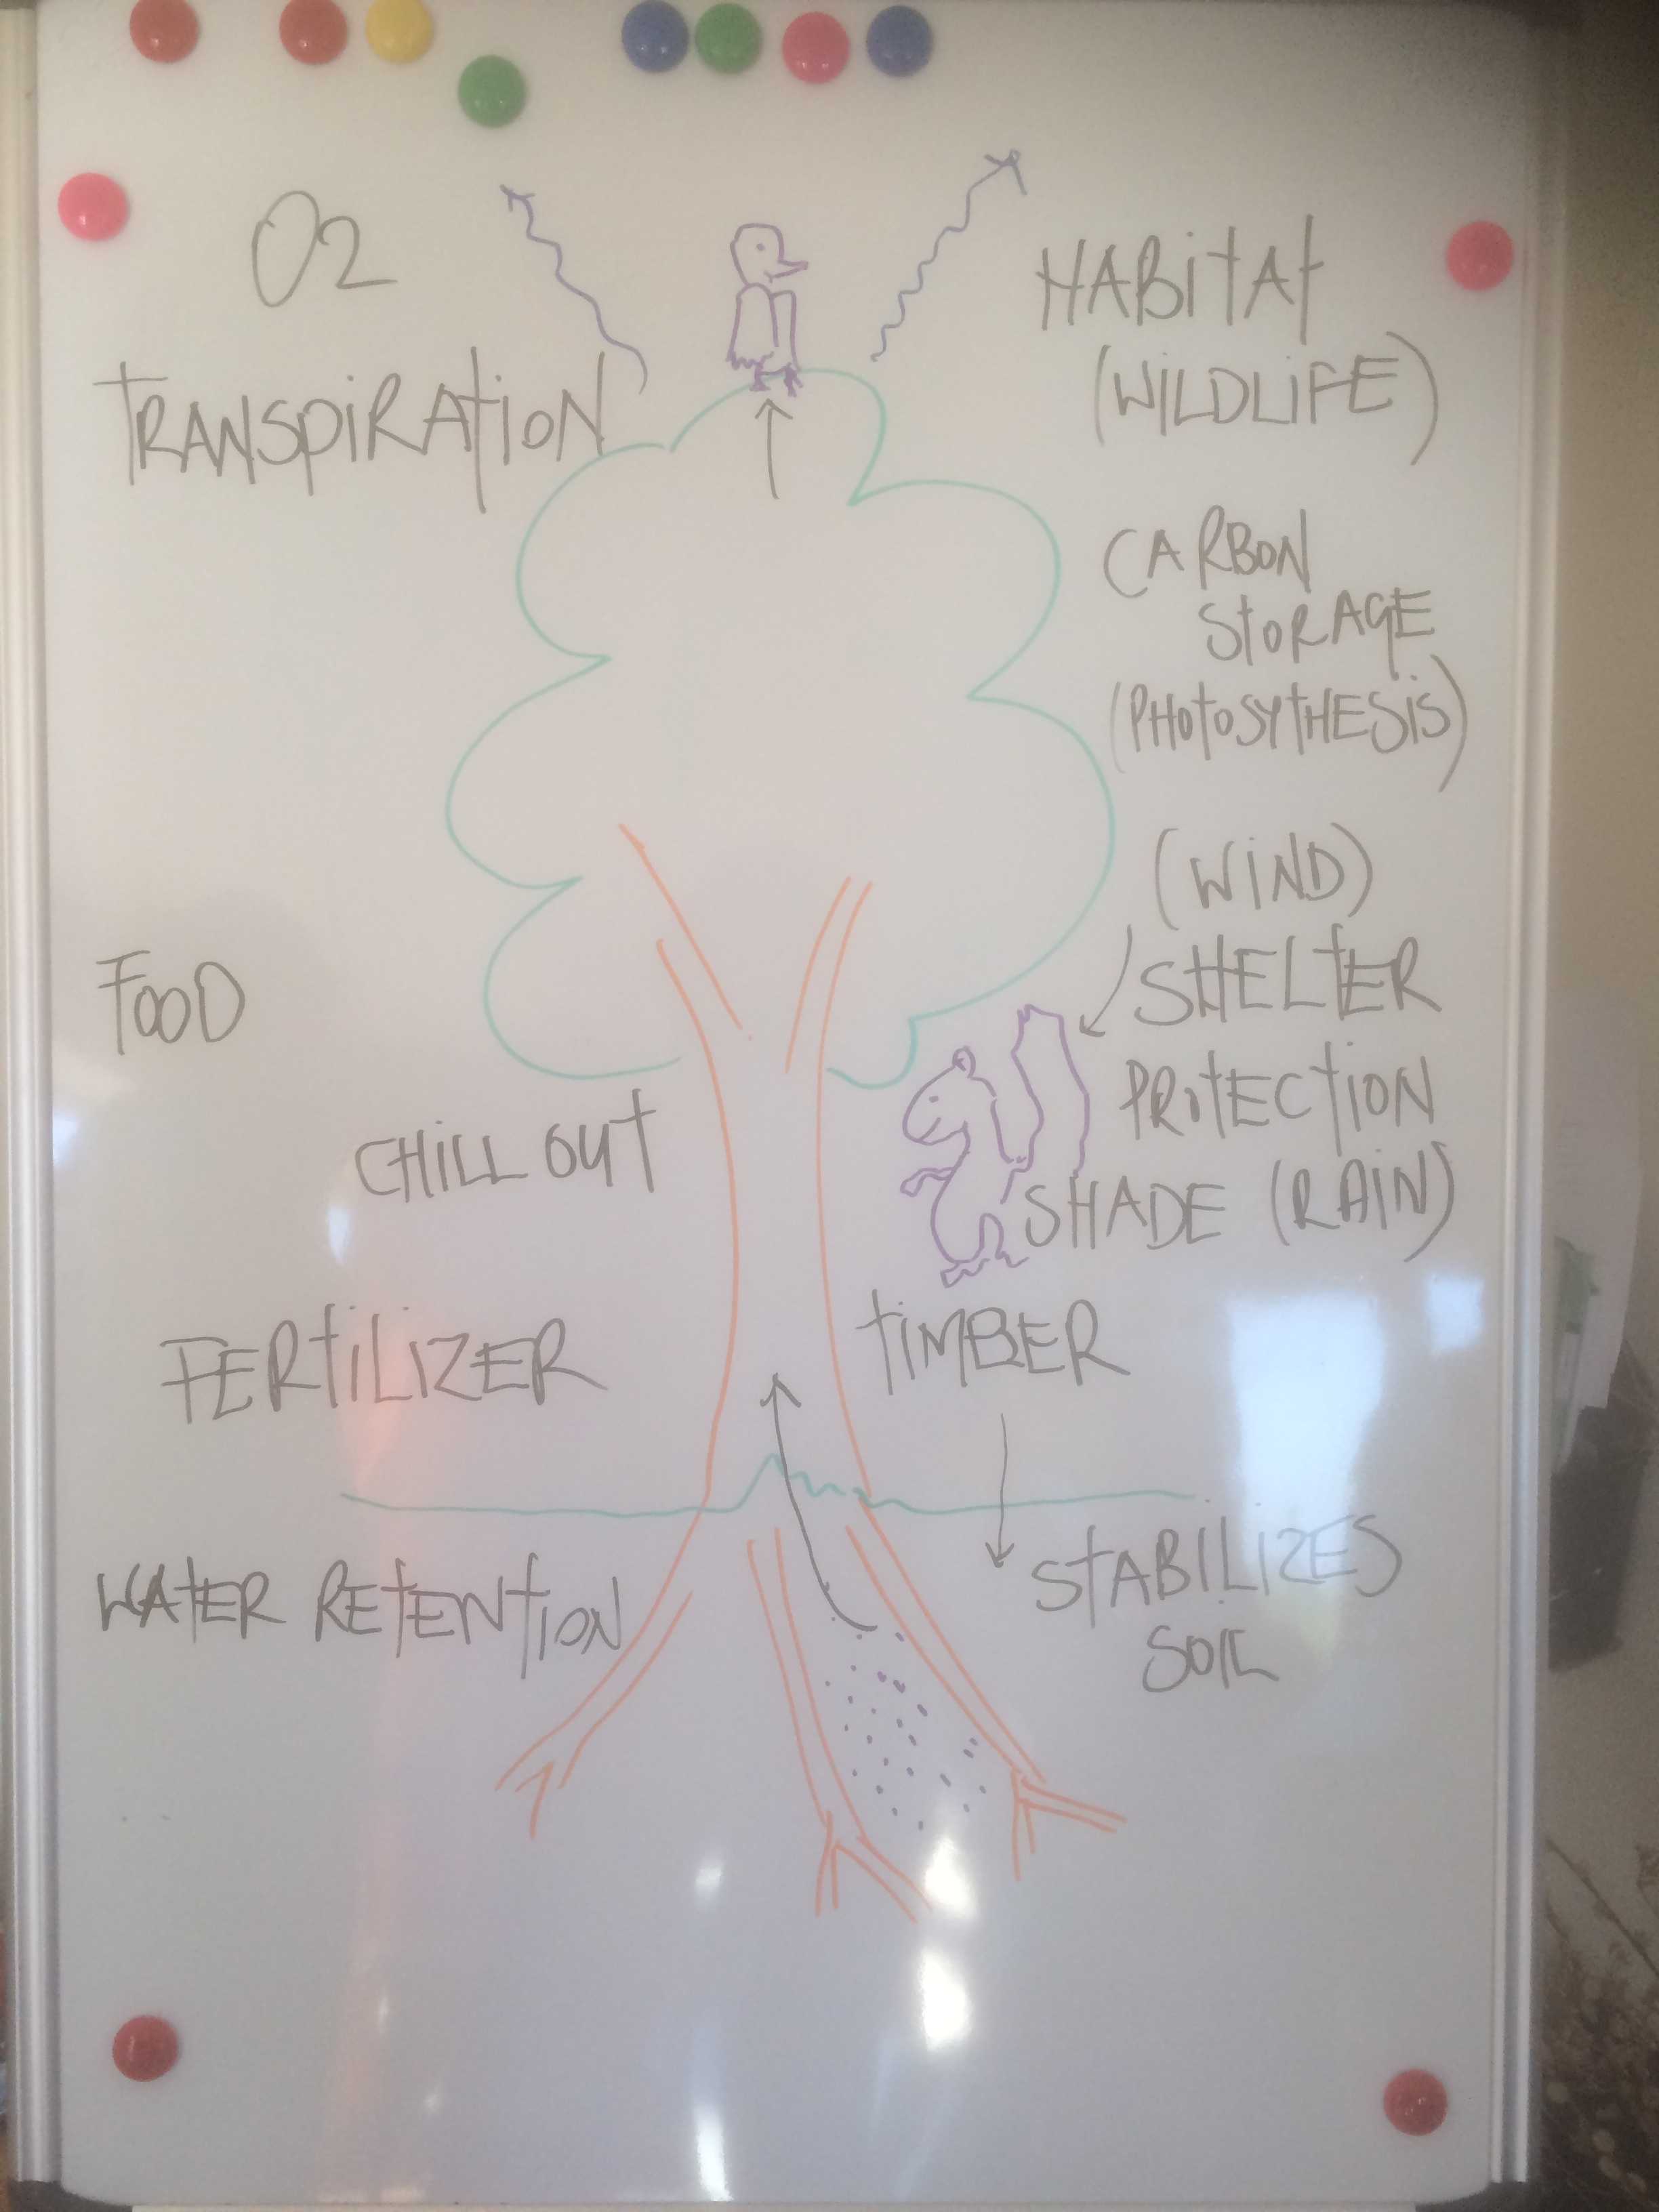 O2
TRANSPIRATION
HABITAT
(WILDLIFE)
CARBON
STORAGE
(PHOTOSYTHESIS)
(WIND)
SHELTER
PROTECTION
SHADE (RAIN)
FOOD
CHILL OUT
FERTILIZER
TIMBER
WATER RETENTION
STABILIZES
SOIL